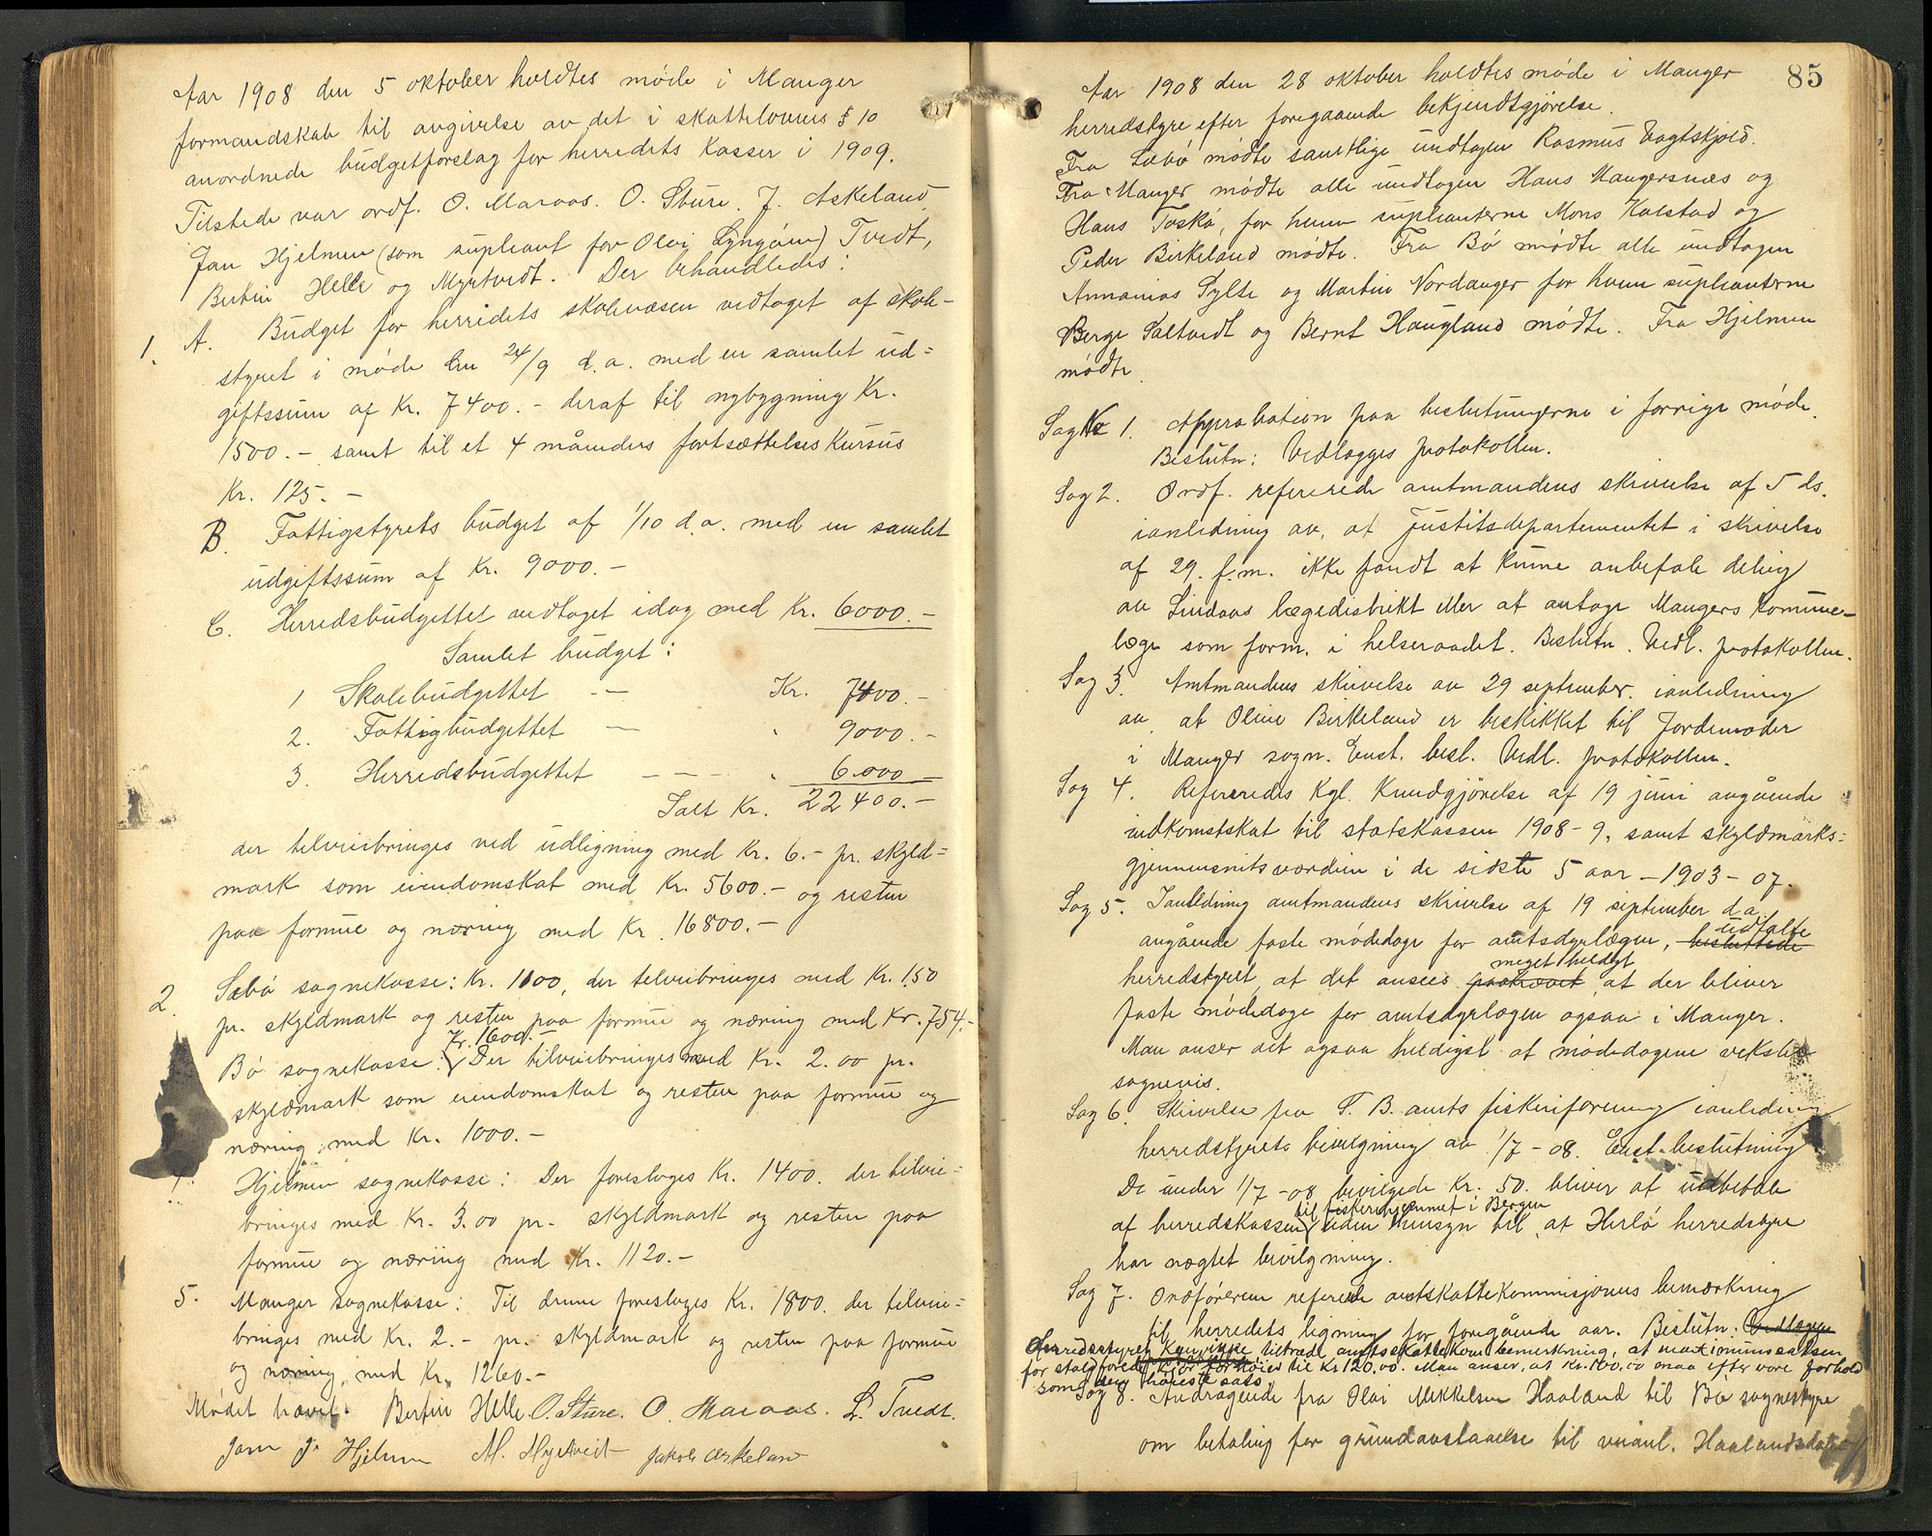 Aar 1908 den 5 oktober holdtes møde i Manger
formandskab til avgivelse av det i skattelovens § 10
anordnede budgetforslag for herredets Kasser i 1909.
Tilstede var ordf. O. Maraas. O. Sture. J. Askeland
Jan Hjelmen (som supleant for Olai Lyngøien) Tvedt,
Bertin Helle og Myrtvedt. Der behandledes:
1. A. Budget for herridets skolevæsen vedtaget af skole-
styret i møde den 24/9 d.a. med en samlet ud=
giftssum af Kr. 7400.- deraf til nybygning Kr.
1500.- samt til et 4 måneders fortsættelses Kursus
Kr. 125.-
B. Fattigstyrets budget af 1/10 d.a. med en samlet
udgiftssum af Kr. 9000.-
C. Herredsbudgettet vedtaget idag med Kr. 6000.-
Samlet budget:
1 Skolebudgettet — Kr. 7400.-
2. Fattigbudgettet — " 9000.-
3 Herredsbudgettet — — — " 6000—
Ialt Kr. 22400.-
der tilveiebringes ved udligning med Kr. 6.- pr. skyld=
mark som eiendomskat med Kr. 5600.- og resten
paa formue og næring med Kr. 16800.-
2. Sæbø sognekasse: Kr. 1100, der tilveiebringes med Kr. 1.50
pr. skyldmark og resten paa formue og næring med Kr. 754.-
Kr. 1600.-
Bø sognekasse: Der tilveiebringes med Kr. 2.00 pr.
skyldmark som eiendomskat og resten paa formue og
næring med Kr. 1000.-
Hjelmen sognekasse: Der foreslages Kr. 1400. der tilveie=
bringes med Kr. 3.00 pr. skyldmark og resten paa
formue og næring med Kr. 1120.-
5. Manger sognekasse: Til denne foreslages Kr. 1800. der tilveie=
bringes med Kr. 2.- pr. skyldmark og resten paa formue
og næring, med Kr. 1260.-
Mødet hævet. Bertin Helle O. Sture. O. Maraas. L. Tvedt.
Jan J. Hjelmen M. Myrtveit Jakob Askeland
85
Aar 1908 den 28 oktober holdtes møde i Manger
herredstyre efter foregaaende bekjendtgjørelse.
Fra Sæbø mødte samtlige undtagen Rasmus Vagtskjold.
Fra Manger mødte alle undtagen Hans Mangersnæs og
Hans Toskø, for hvem suplianterne Mons Kalstad og
Peder Birkeland mødte. Fra Bø mødte alle undtagen
Annanias Sylte og Martin Nordanger for hvem suplianterne
Berge Saltvedt og Bernt Haugland mødte. Fra Hjelmen
mødte
Sag No 1. Approbation paa beslutningerne i forrige møde.
Beslutn: Vedlægges protokollen.
Sag 2. Ordf. refererede amtmandens skrivelse af 5 ds.
ianledning av, at Justitsdepartementet i skrivelse
af 29. f.m. ikke fandt at kunne anbefale deling
av Lindaas lægedistrikt eller at antage Mangers kommune-
læge som form. i helseraadet. Beslutn. Vedl. protokollen.
Sag 3. Amtmandens skrivelse av 29 september. ianledning
av, at Oline Birkeland er beskikket til Jordemoder
i Manger sogn. Enst. besl. Vedl. protokollen.
Sag 4. Refereredes Kgl. Kundgjørelse af 19 juni angående
indkomstskat til statskassen 1908-9, samt skyldmarks=
gjennemsnitsværdien i de sidste 5 aar - 1903-07.
Sag 5. Ianledning amtmandens skrivelse af 19 september d.a.
udtalte
angående faste mødedage for amtsdyrlægen, besluttede
meget heldigt
herredstyret, at det ansees paakrævet at der bliver
faste mødedage for amtsdyrlægen ogsaa i Manger.
Man anser det ogsaa heldigst at mødedagene veksler
sognevis.
Sag 6. Skrivelse fra S. B. amts fiskeriforening ianledning
herredstyrets bevilgning av 1/7-08. Enst. beslutning
De under 1/7-08 bevilgede Kr. 50. bliver at udbetale
til fiskerihjemmet i Bergen
af herredskassen uden hensyn til, at Herlø herredstyre
har nægtet bevilgning.
Sag 7. Ordføreren refererede amtskattekommisjonens bemærkning
til herredets ligning for foregående aar. Beslutn: Vedlægges
Herredsstyret Kan ikke tiltræde amtsskattekom. bemerkning, at maximumssatsen
for staldforet Kjør forhøies til Kr 120.00. Man anser, at Kr. 100.00 maa efter vore forhold
som den høieste sats.
Sag 8. Andragende fra Olai Mikkelsen Haaland til Bø sognestyre
om betaling for grundavstaaelse til veianl. Haalandsdalen